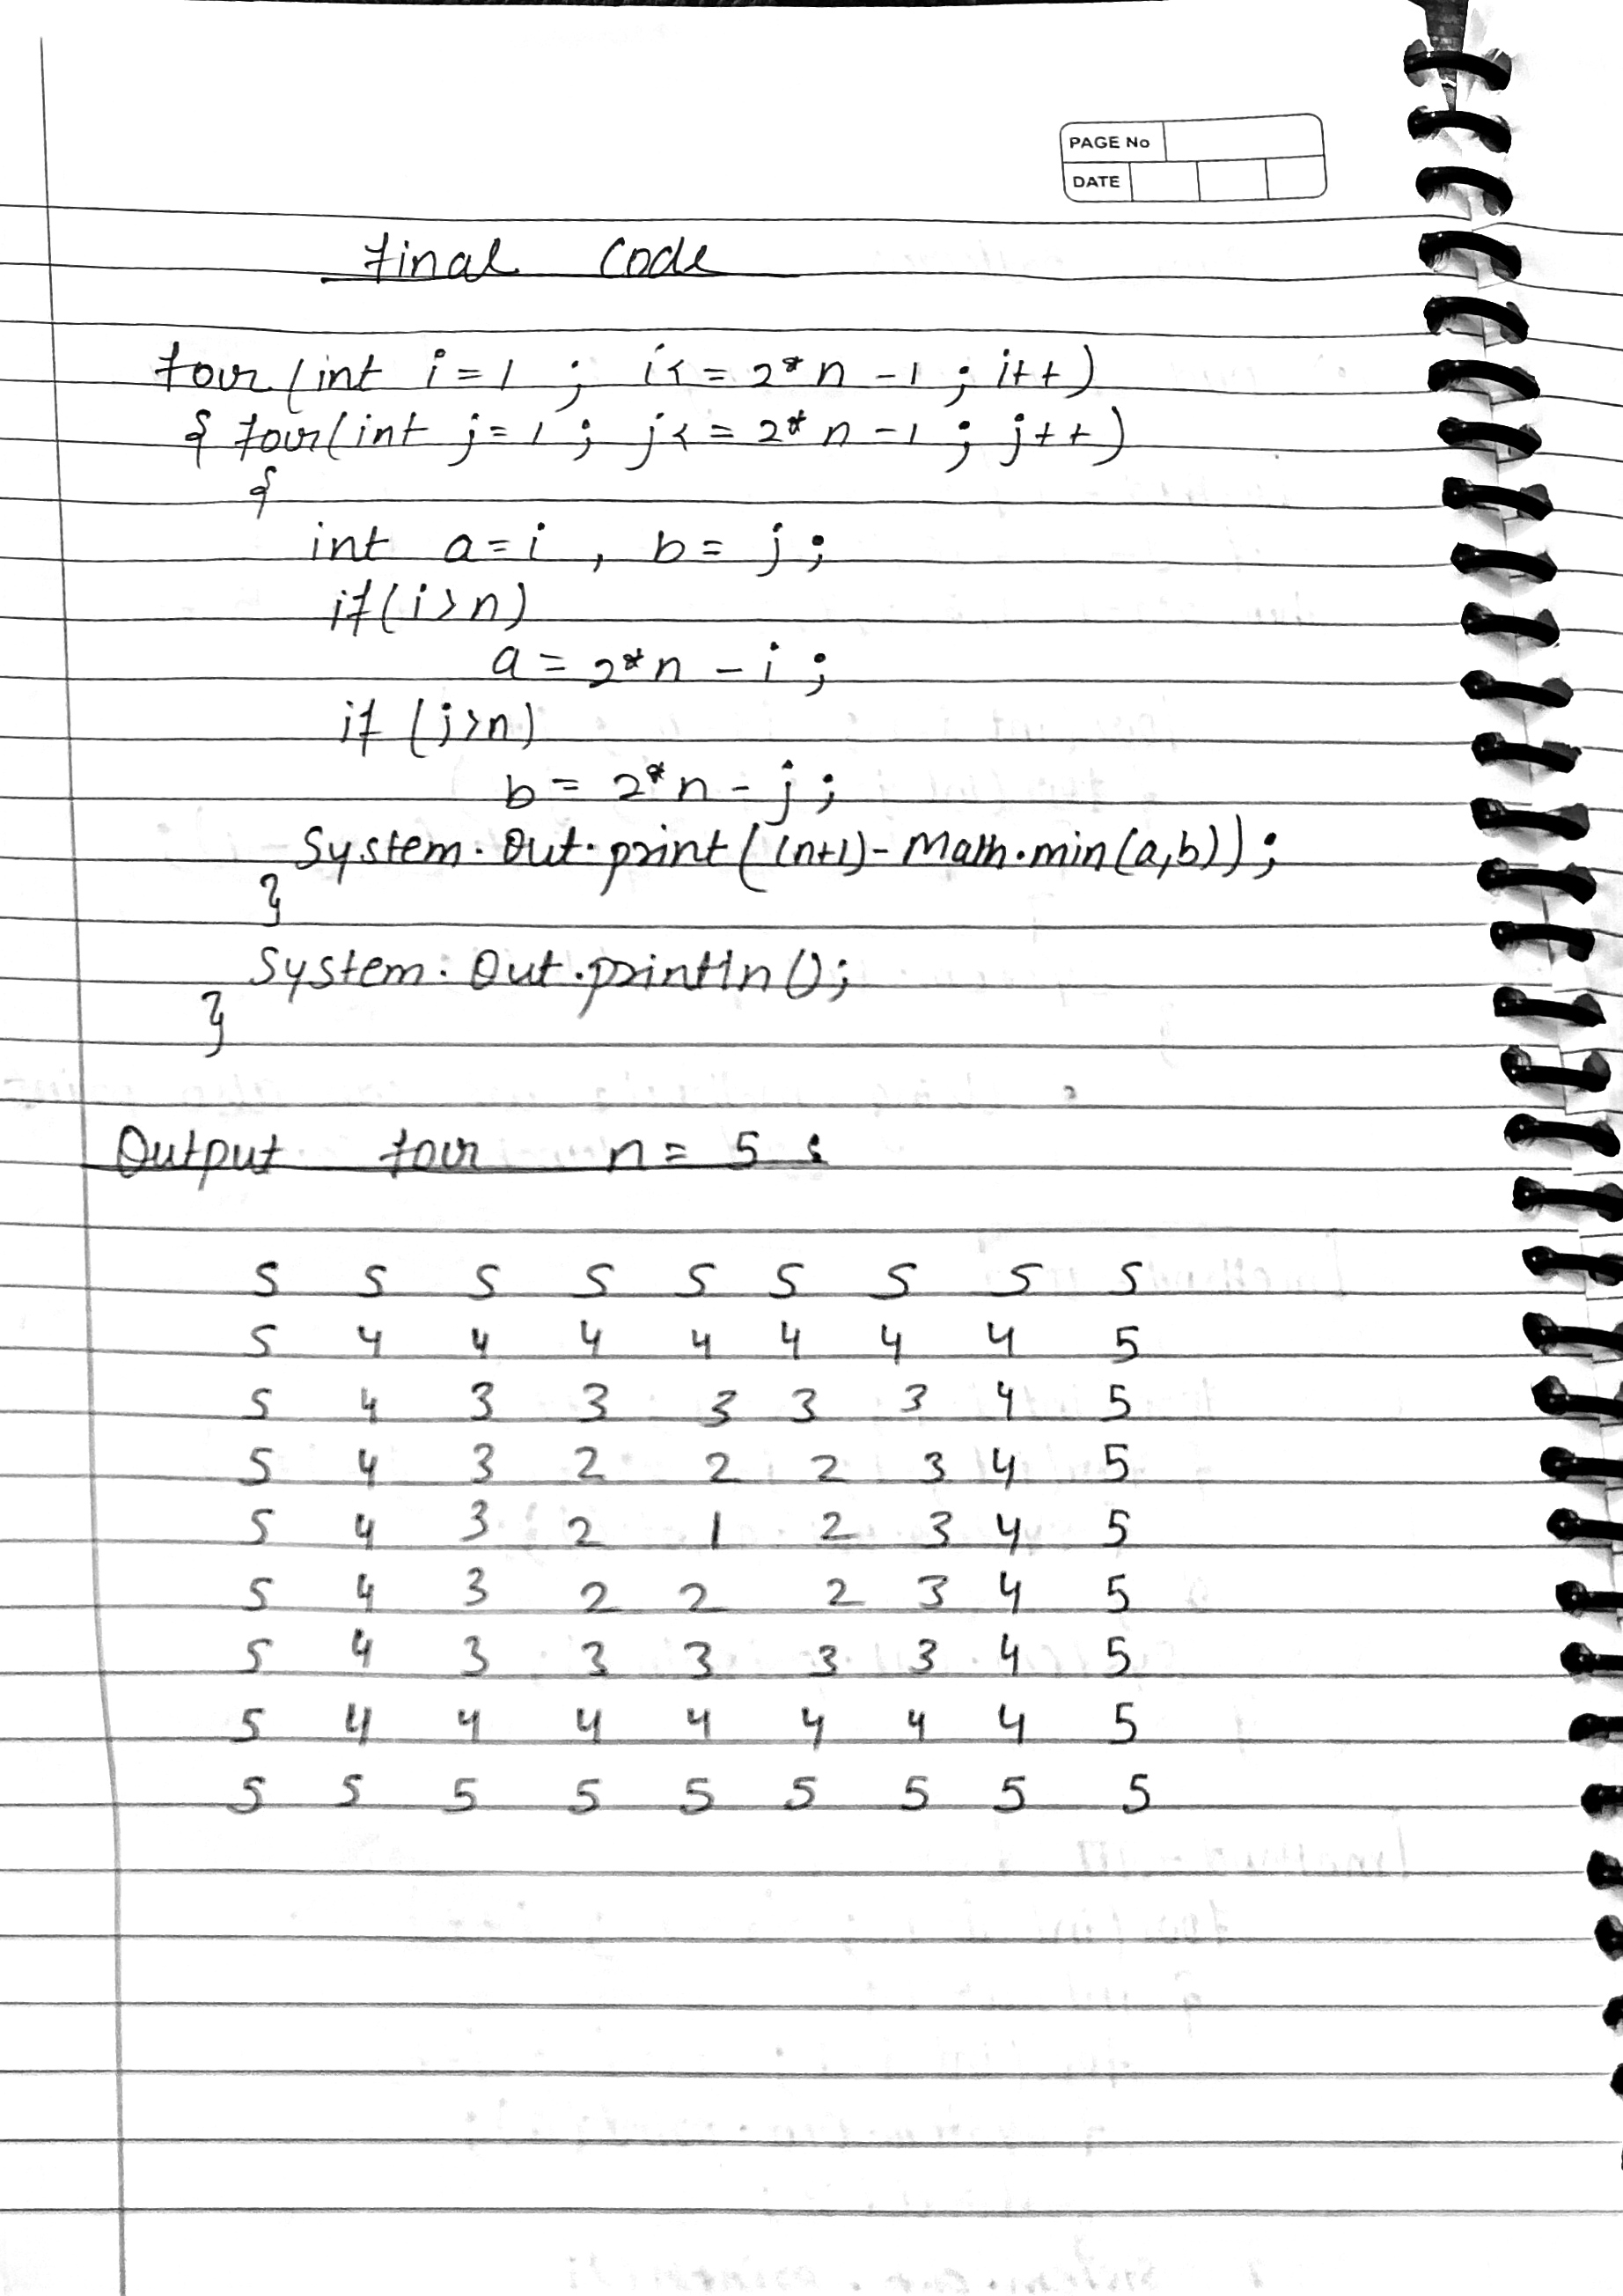 PAGE No
DATE
Final Code
for (int i = 1 ; i < = 2*n - 1 ; i++)
{ for (int j = 1 ; j < = 2*n - 1 ; j++)
{
int a = i , b = j ;
if (i > n)
a = 2*n - i ;
if (j > n)
b = 2*n - j ;
System.Out.print ( (n+1) - Math.min(a,b)) ;
}
System.Out.println () ;
}
Output for n = 5 :
5 5 5 5 5 5 5 5 5
5 4 4 4 4 4 4 4 5
5 4 3 3 3 3 3 4 5
5 4 3 2 2 2 3 4 5
5 4 3 2 1 2 3 4 5
5 4 3 2 2 2 3 4 5
5 4 3 3 3 3 3 4 5
5 4 4 4 4 4 4 4 5
5 5 5 5 5 5 5 5 5